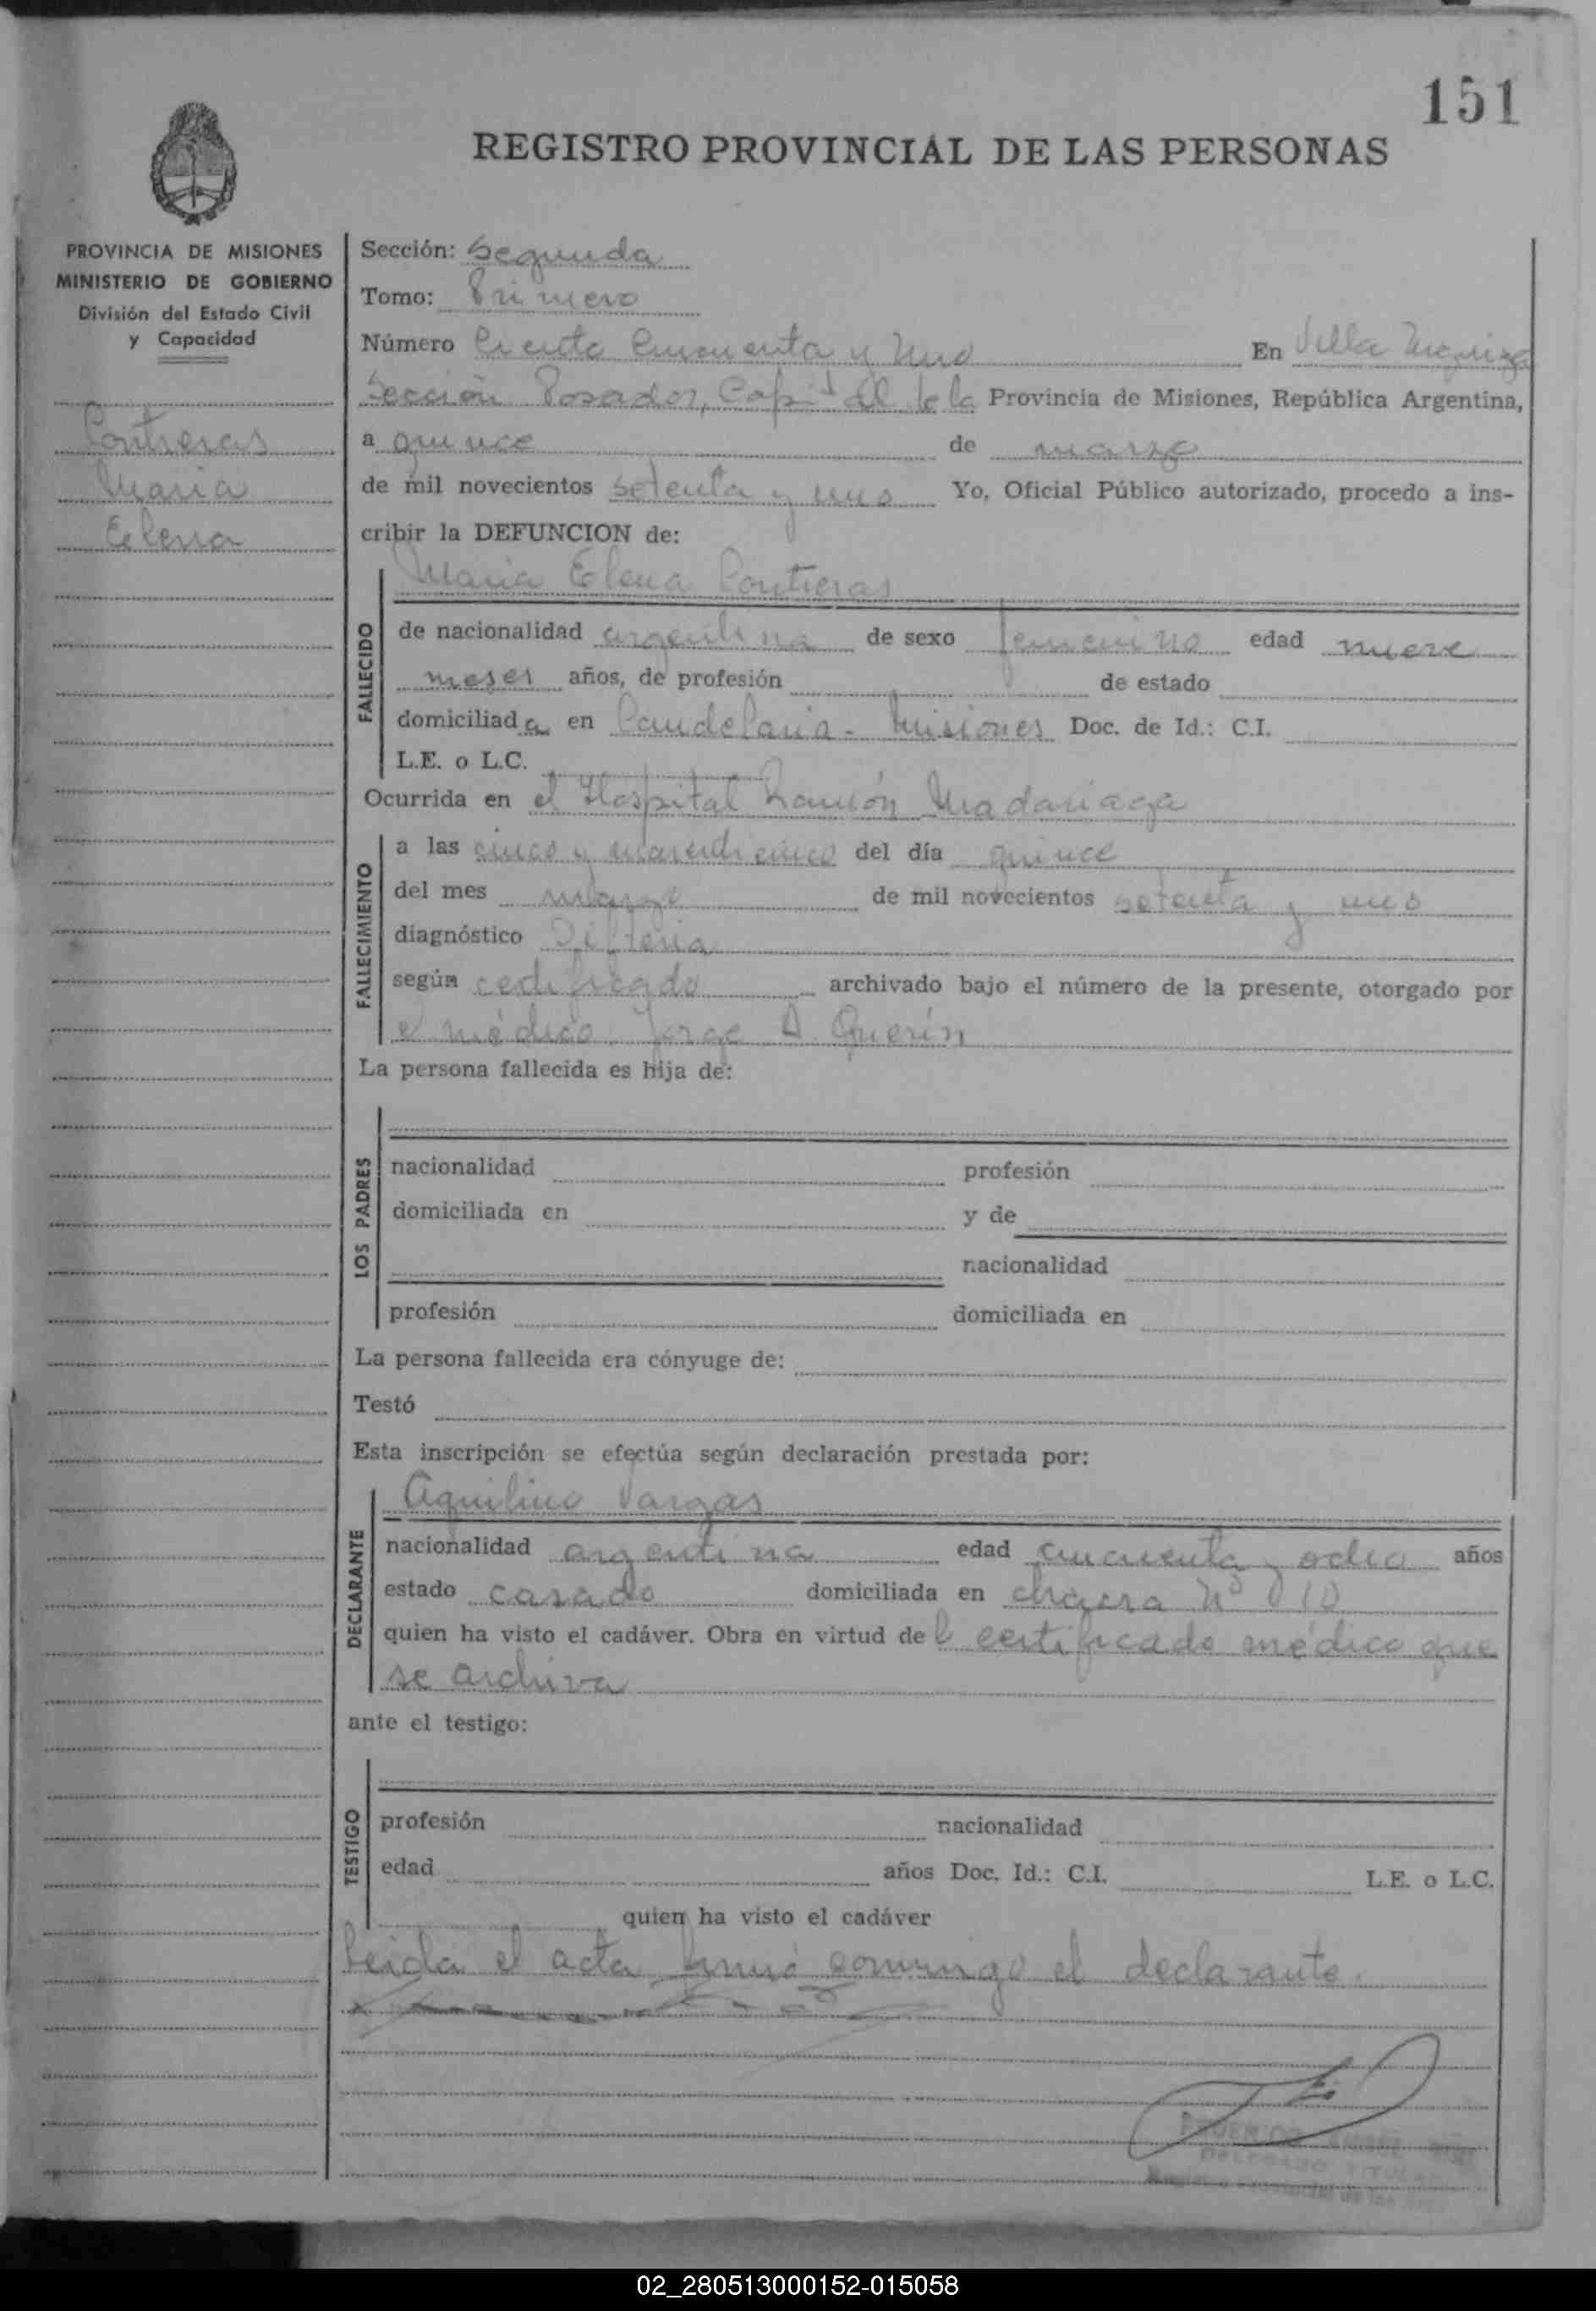 151
REGISTRO PROVINCIAL DE LAS PERSONAS
PROVINCIA DE MISIONES
MINISTERIO DE GOBIERNO
División del Estado Civil
y Capacidad
Contreras
Maria
Elena
Sección: Segunda
Tomo: Primero
Número Ciento Cincuenta y Uno En Villa Urquiza
Sección Posadas, Capital de la Provincia de Misiones, República Argentina,
a quince de marzo
de mil novecientos setenta y uno Yo, Oficial Público autorizado, procedo a ins-
cribir la DEFUNCION de:
FALLECIDO
Maria Elena Contreras
de nacionalidad argentina de sexo femenino edad nueve
meses años, de profesión de estado
domiciliada en Candelaria - Misiones Doc. de Id.: C.I.
L.E. o L.C.
Ocurrida en el Hospital Ramón Madariaga
FALLECIMIENTO
a las cinco y del día quince
del mes marzo de mil novecientos setenta y uno
diagnóstico Difteria
según certificado archivado bajo el número de la presente, otorgado por
el médico Jorge A. Querín
La persona fallecida es hija de:
LOS PADRES
nacionalidad profesión
domiciliada en y de
nacionalidad
profesión domiciliada en
La persona fallecida era cónyuge de:
Testó
Esta inscripción se efectúa según declaración prestada por:
DECLARANTE
Aquilino Vargas
nacionalidad argentina edad cincuenta y ocho años
estado casado domiciliada en chacra Nº 10
quien ha visto el cadáver. Obra en virtud del certificado médico que
se archiva
ante el testigo:
TESTIGO
profesión nacionalidad
edad años Doc. Id.: C.I. L.E. o L.C.
quien ha visto el cadáver
Leida el acta firmó conmigo el declarante.
DELEGADO TITULAR
02_280513000152-015058